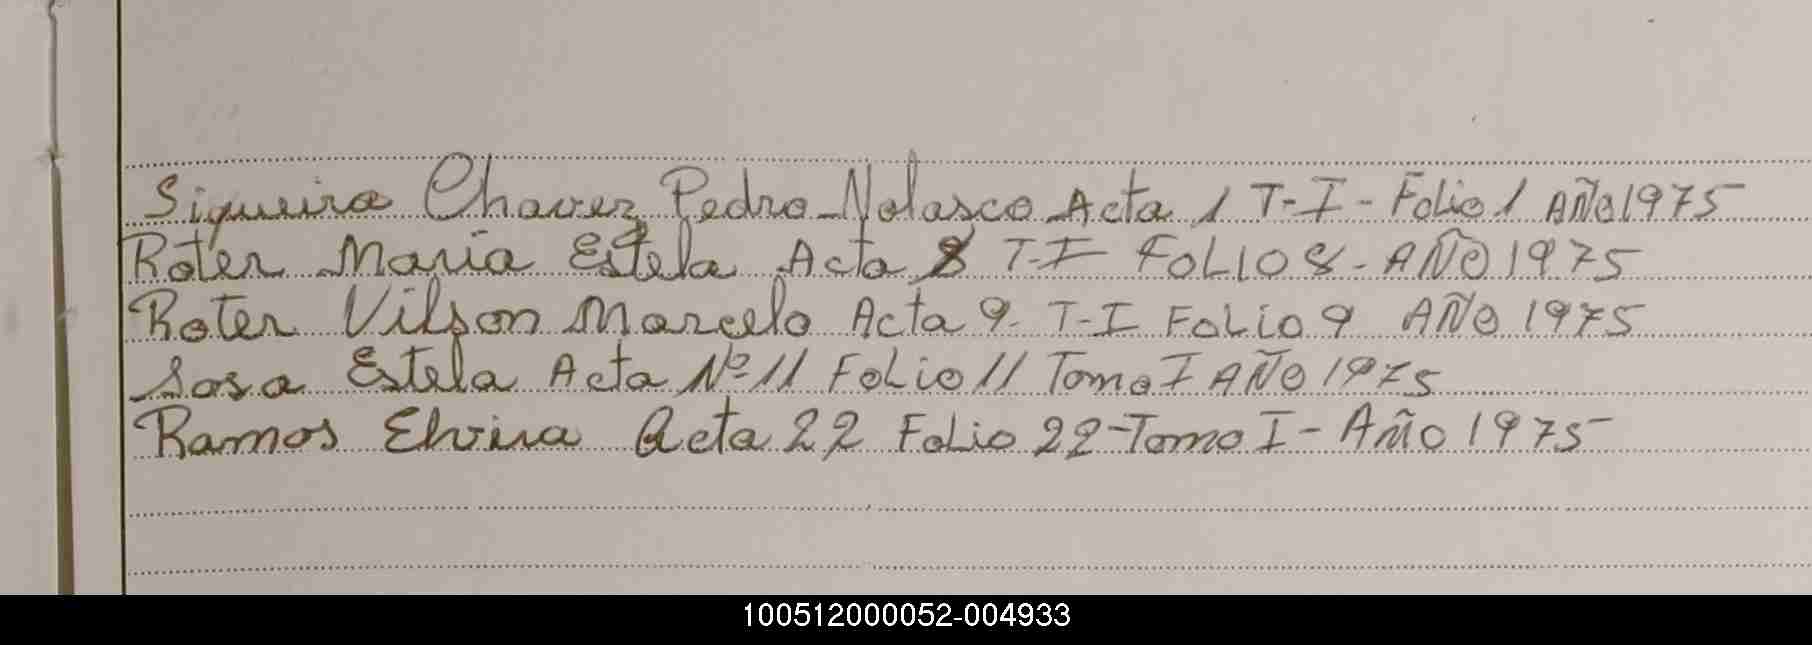 Siqueira Chavez Pedro Nolasco Acta 1 T-I-Folio 1 Año 1975
Roter Maria Estela Acta 8 T-I FOLIO 8-AÑO 1975
Roter Vilson Marcelo Acta 9- T-I FOLIO 9 AÑO 1975
Sosa Estela Acta Nº 11 FOLIO 11 Tomo I AÑO 1975
Ramos Elvira Acta 22 Folio 22-Tomo I-Año 1975
100512000052-004933